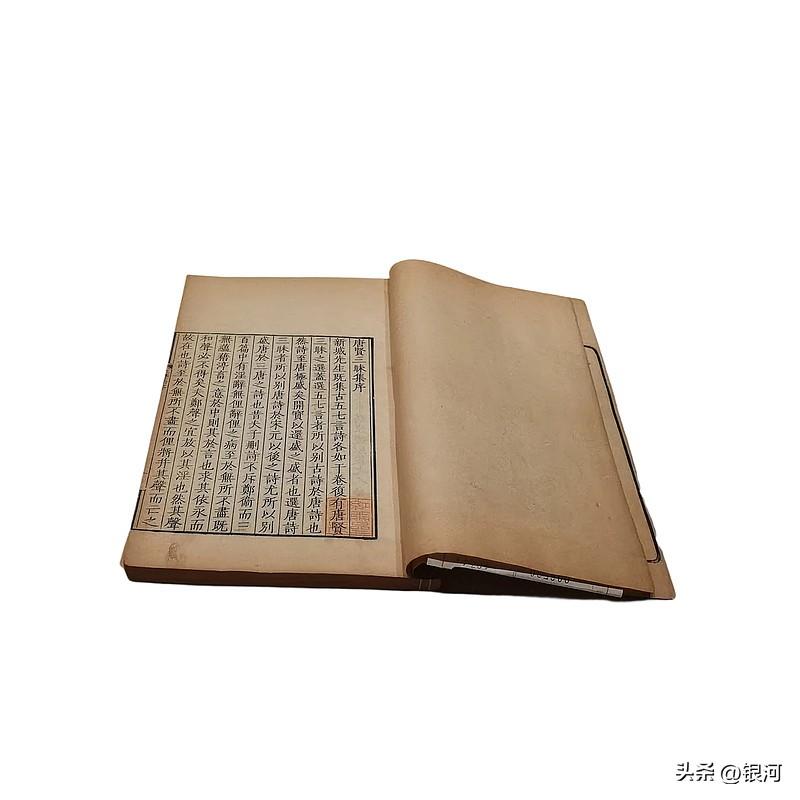 唐賢三昧集序
新城先生既集古五七言詩各如干卷復有唐賢
三昧之選蓋選五七言者所以别古詩於唐詩也
然詩至唐極盛矣開寶以還盛之盛者也選唐詩
三昧者所以别唐詩於宋元以後之詩尤所以别
盛唐於三唐之詩也昔夫子刪詩不斥鄭衞而三
百篇中有淫辭無俚辭俚之病至於無所不盡既
無蘊藉渟畜之意於中則其於言也求其依永而
和聲必不得矣夫鄭聲之宜放以其淫也然其聲
故在也詩至於無所不盡而俚將并其聲而亡之
头条 @银河